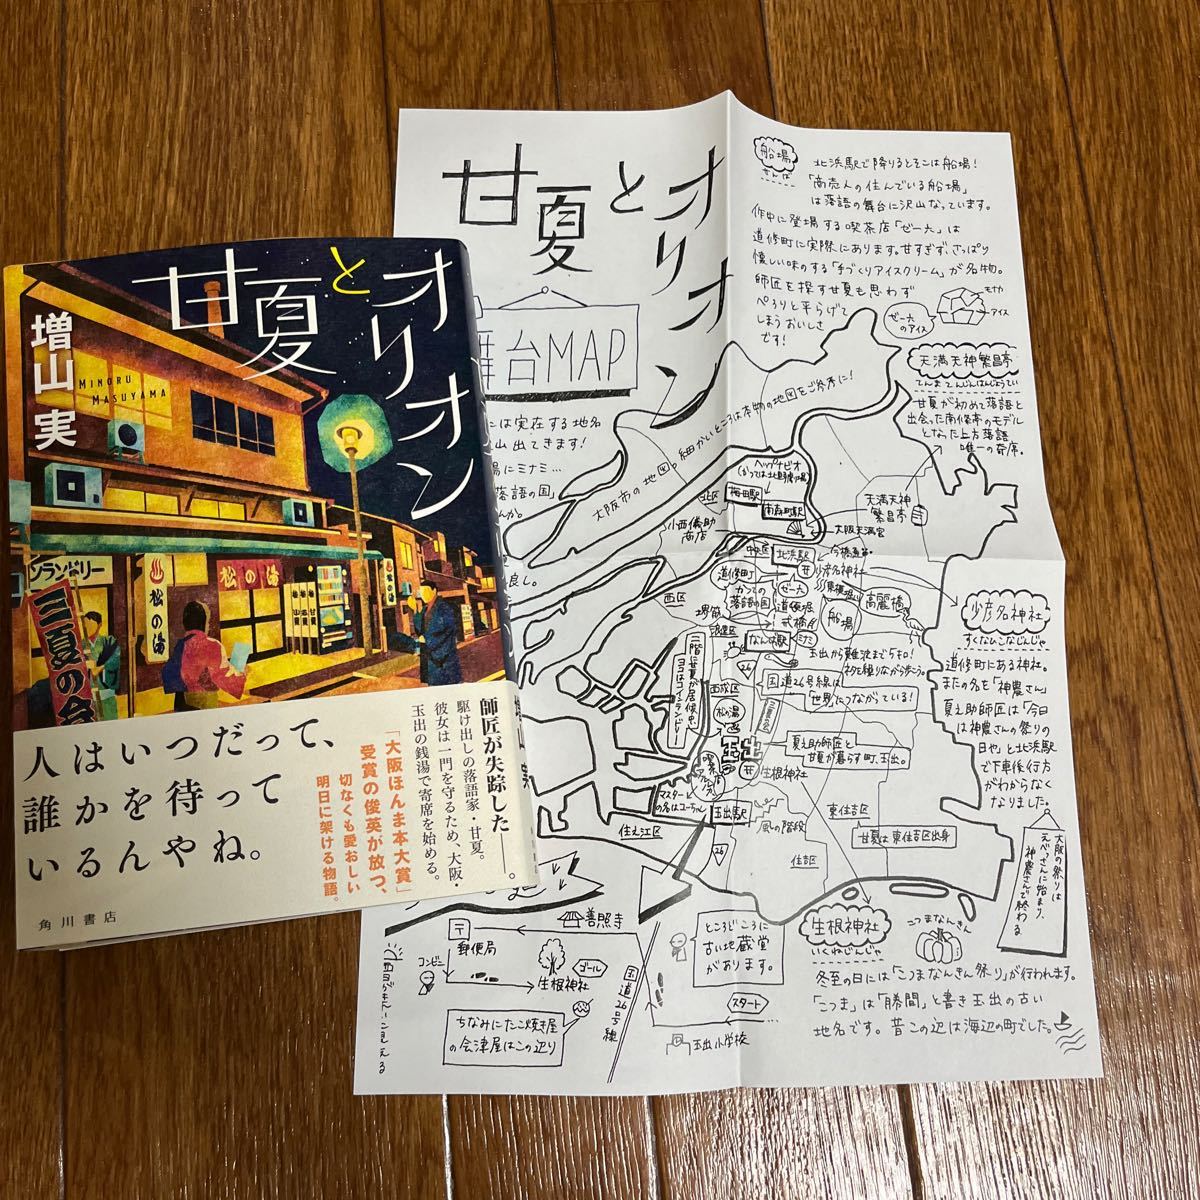 甘夏とオリオン
増山 実
MINORU
MASUYAMA
ンランドリー
三夏の会
松の湯
松の湯
師匠が失踪した――。
駆け出しの落語家・甘夏。
彼女は一門を守るため、大阪・
玉出の銭湯で寄席を始める。
「大阪ほんま本大賞」
受賞の俊英が放つ、
切なくも愛おしい
明日に架ける物語。
人はいつだって、
誰かを待って
いるんやね。
角川書店
甘夏とオリオン
舞台MAP
には実在する地名
山出てきます!
場にミナミ…
落語の国」
んか。
船場
せんば
北浜駅で降りるとそこは船場!
「商売人の住んでいる船場」
は落語の舞台に沢山なっています。
作中に登場する喫茶店「ゼー六」は
道修町に実際にあります。甘すぎず、さっぱり
懐しい味のする「手づくりアイスクリーム」が名物。
師匠を探す甘夏も思わず
ぺろりと平らげて
しまうおいしさ
です!
ゼー六
のアイス
モナカ
アイス
天満天神繁昌亭
てんまてんじんはんじょうてい
甘夏が初めて落語と
出会った南條亭のモデル
となった上方落語
唯一の寄席。
大阪市の地図。細かいところは本物の地図をご参考に!
ヘップナビオ
北区
梅田駅
南森町駅
天満天神
繁昌亭
大阪天満宮
小西儀助
商店
中央区
北浜駅
少彦名神社
道修町
かつての
落語の国
ゼー六
道頓堀
高麗橋
船場
西区
堺筋
浪速区
なんば駅
ミナミ
玉出から難波まで5キロ!
ネタを繰りながら歩こう。
国道26号線は
「世界」につながっている!
26
西成区
松の湯
二階に甘夏が居候中
ヨコはコインランドリー
玉出
夏之助師匠と
甘夏が暮らす町、玉出。
生根神社
マスター
の名はコーちゃん
玉出駅
住之江区
風の階段
26
住吉区
東住吉区
甘夏は東住吉区出身
少彦名神社
すくなひこなじんじゃ
道修町にある神社。
またの名を「神農さん」
夏之助師匠は「今日
は神農さんの祭りの
日や」と北浜駅
で下車後行方
がわからなく
なりました。
大阪の祭りは
えべっさんに始まり、
神農さんで終わる
生根神社
いくねじんじゃ
こつまなんきん
冬至の日には「こつまなんきん祭り」が行われます。
「こつま」は「勝間」と書き玉出の古い
地名です。昔この辺は海辺の町でした。
善照寺
郵便局
コンビニ
生根神社
ゴール
国道26号線
ちなみにたこ焼き屋
の会津屋はこの辺り
ところどころに
古い地蔵堂
があります。
スタート
玉出小学校